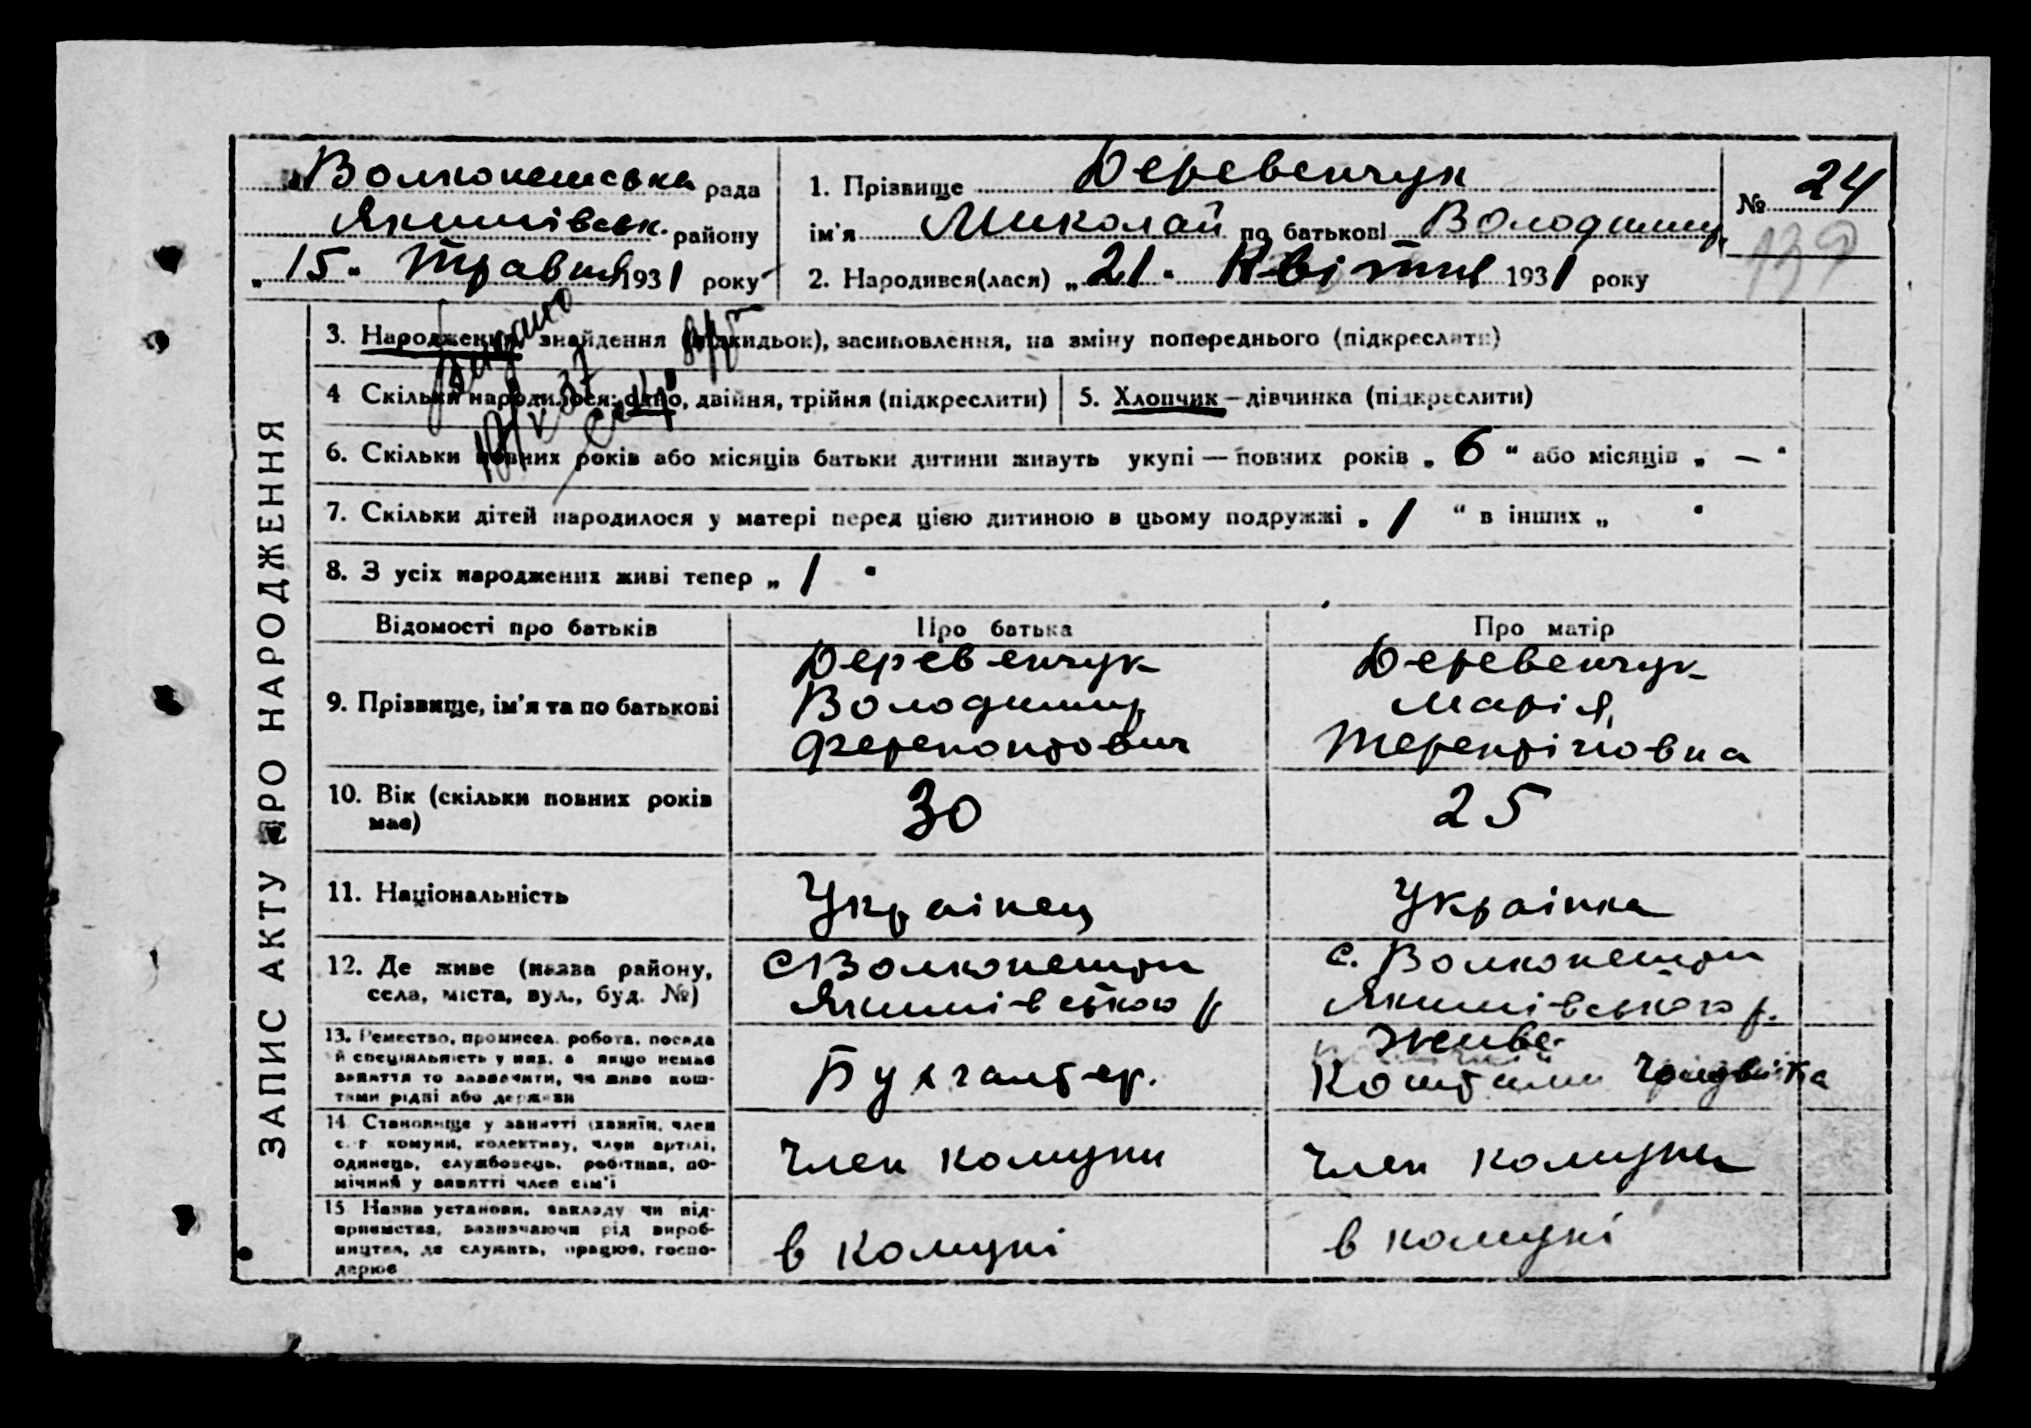 Волконешська рада
Якимівськ. району
„15“ Травня 1931 року
1. Прізвище Деревенчук
ім'я Миколай по батькові Володимир
2. Народився(лася) „21“ Квітня 1931 року
№ 24
139
ЗАПИС АКТУ ПРО НАРОДЖЕННЯ
3. Народження, знайдення (підкидьок), засиновлення, на зміну попереднього (підкреслити)
4 Скільки народилося: одно, двійня, трійня (підкреслити)
5. Хлопчик — дівчинка (підкреслити)
6. Скільки повних років або місяців батьки дитини живуть укупі — повних років „6“ або місяців „—“
7. Скільки дітей народилося у матері перед цією дитиною в цьому подружжі „1“ в інших „ “
8. З усіх народжених живі тепер „1“
Відомості про батьків
Про батька
Про матір
9. Прізвище, ім'я та по батькові
Деревенчук
Володимир
Ферепонтович
Деревенчук
Марія
Терентіювна
10. Вік (скільки повних років
має)
30
25
11. Національність
Українец
Українка
12. Де живе (назва району,
села, міста, вул., буд. №)
с Волконешти
Якимівського р
с. Волконешти
Якимівського р.
13. Ремество, промисел, робота, посада
й спеціяльність у них, а якщо немає
заняття то зазначити, чи живе кош-
тами рідні або держави
Бухгалтер.
живе
Коштами чоловіка
14 Становище у занятті (хазяїн, член
с.-г. комуни, колективу, член артілі,
одинець, службовець, робітник, по-
мічний у занятті член сім'ї
Член комуни
Член комуни
15 Назва установи, закладу чи під-
приємства, зазначаючи рід вироб-
ництва, де служить, працює, госпо-
дарює
в комуні
в комуні